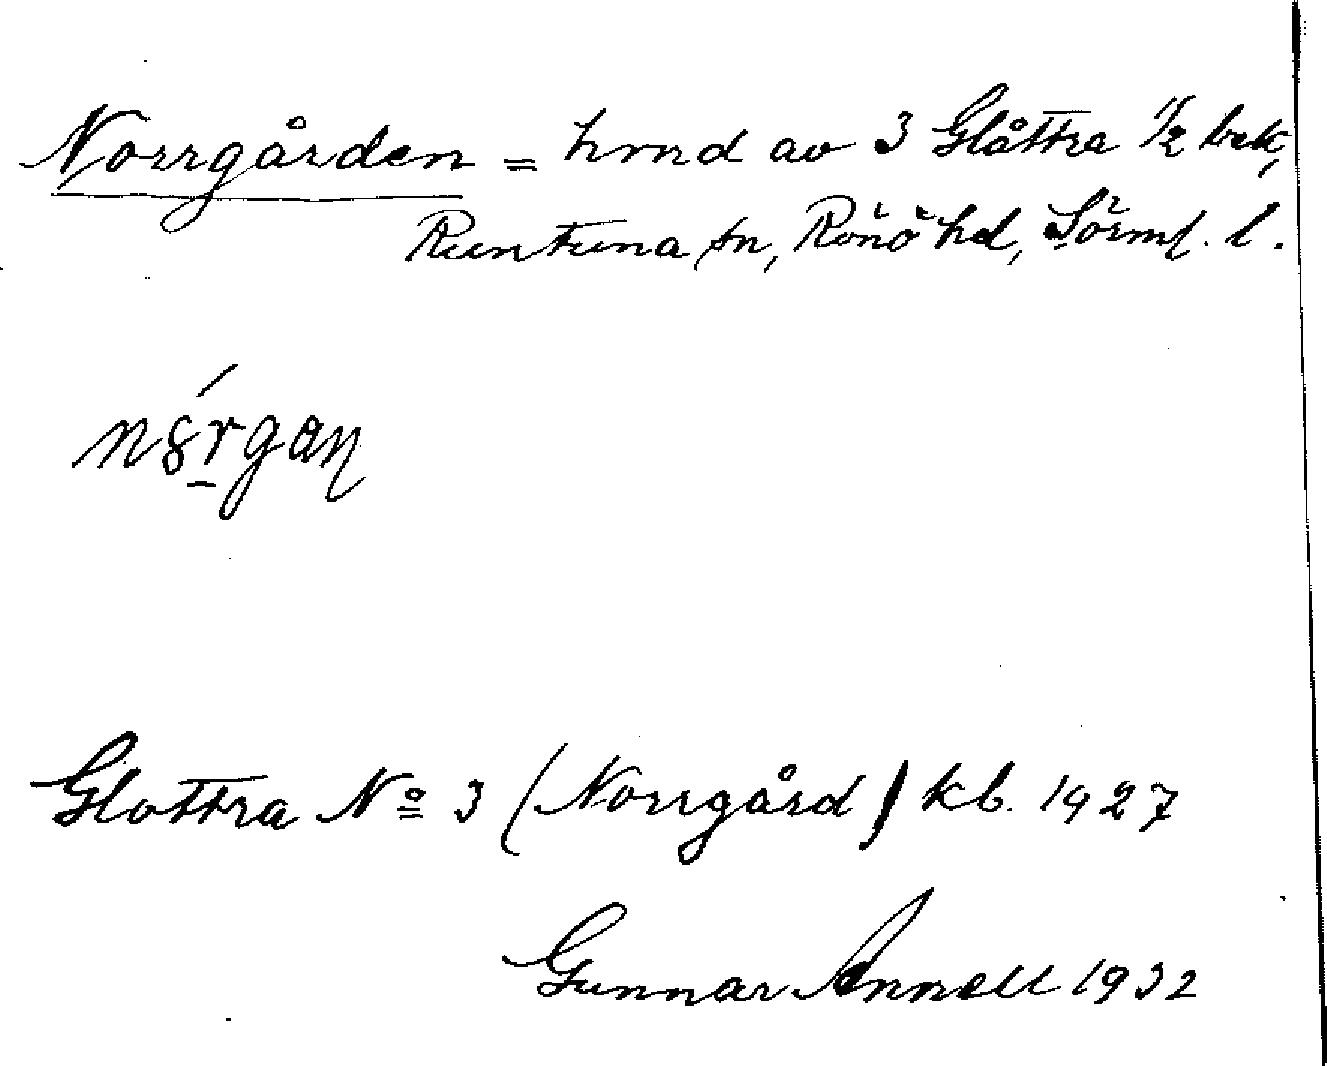 Norrgården = hmd av 3 Glåttra 1/2 bek,
Runtuna sn, Rönö hd, Sörml. l.
Glottra No 3 (Norrgård) kb. 1927
Gunnar Annell 1932